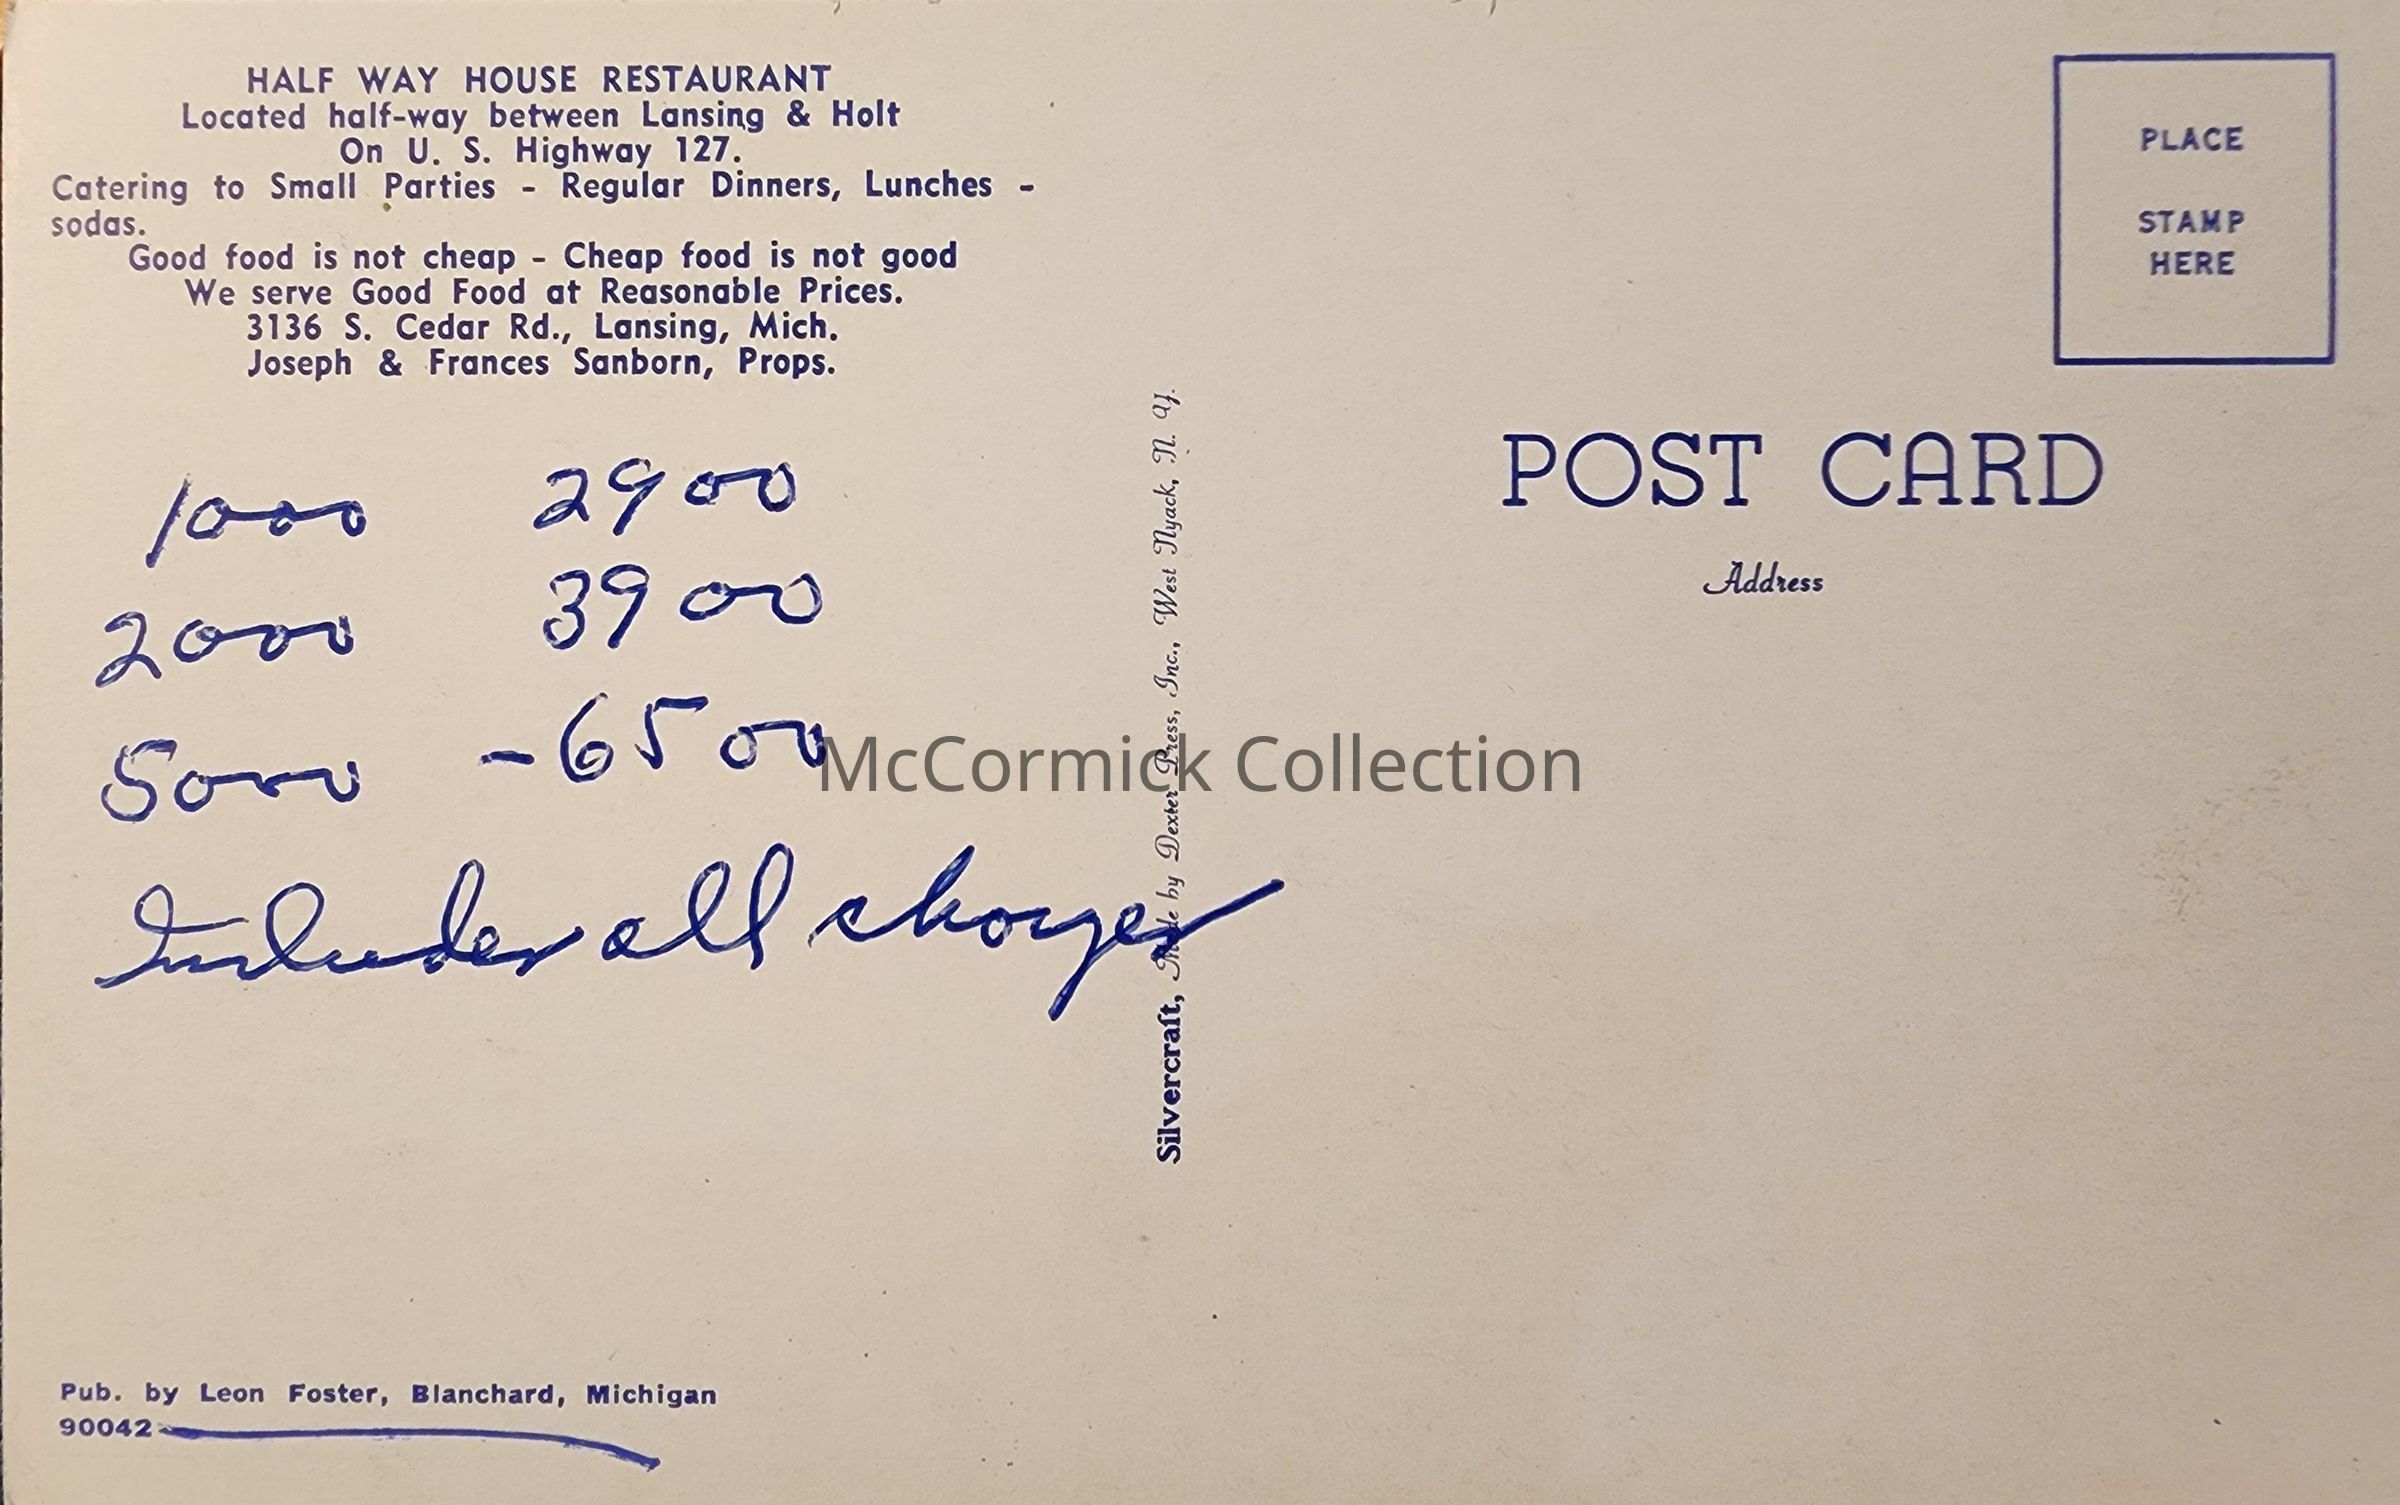 HALF WAY HOUSE RESTAURANT
Located half-way between Lansing & Holt
On U. S. Highway 127.
Catering to Small Parties - Regular Dinners, Lunches -
sodas.
Good food is not cheap - Cheap food is not good
We serve Good Food at Reasonable Prices.
3136 S. Cedar Rd., Lansing, Mich.
Joseph & Frances Sanborn, Props.
1000 2900
2000 3900
5000 - 6500
Includes all charges
Pub. by Leon Foster, Blanchard, Michigan
90042
Silvercraft, Made by Dexter Press, Inc., West Nyack, N. Y.
PLACE
STAMP
HERE
POST CARD
Address
McCormick Collection